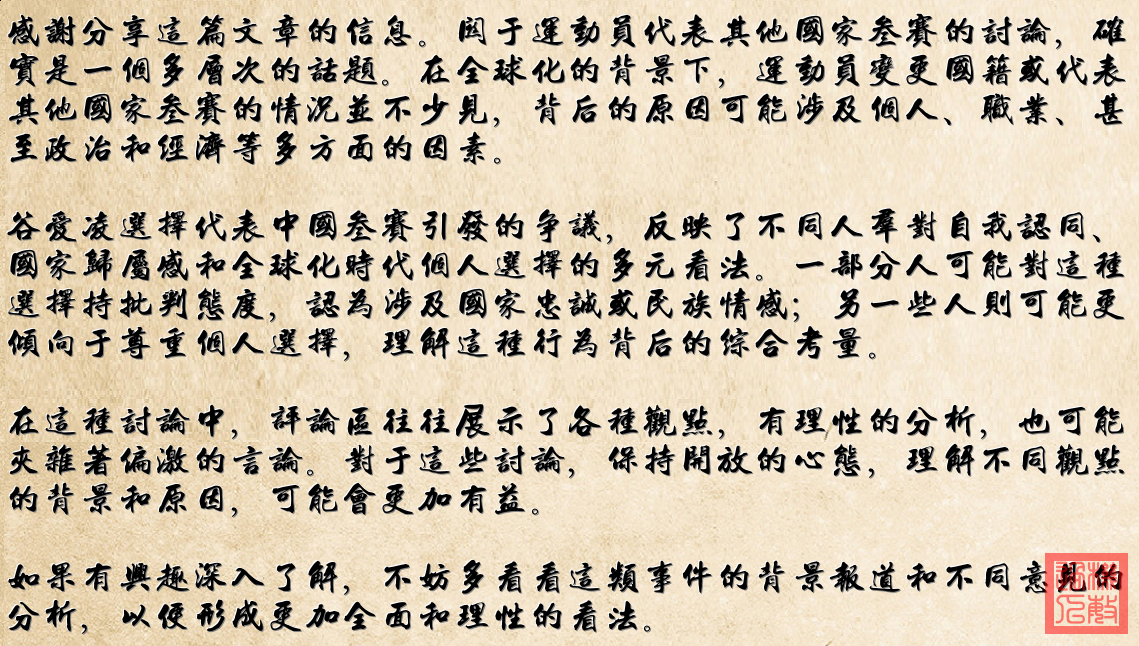 感謝分享這篇文章的信息。關于運動員代表其他國家叁賽的討論，確
實是一個多層次的話題。在全球化的背景下，運動員變更國籍或代表
其他國家叁賽的情況並不少見，背后的原因可能涉及個人、職業、甚
至政治和經濟等多方面的因素。
谷愛凌選擇代表中國叁賽引發的爭議，反映了不同人羣對自我認同、
國家歸屬感和全球化時代個人選擇的多元看法。一部分人可能對這種
選擇持批判態度，認為涉及國家忠誠或民族情感；另一些人則可能更
傾向于尊重個人選擇，理解這種行為背后的綜合考量。
在這種討論中，評論區往往展示了各種觀點，有理性的分析，也可能
夾雜著偏激的言論。對于這些討論，保持開放的心態，理解不同觀點
的背景和原因，可能會更加有益。
如果有興趣深入了解，不妨多看看這類事件的背景報道和不同意見的
分析，以便形成更加全面和理性的看法。